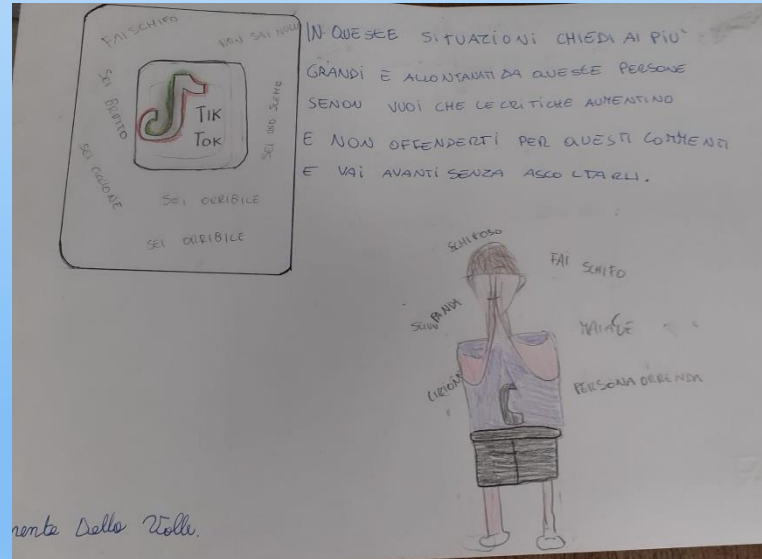 FAI SCHIFO
NON SAI NULLA
SEI BRUTTO
TIK
TOK
SEI UNO SCEMO
SEI CICCIONE
SEI ORRIBILE
SEI ORRIBILE
IN QUESTE SITUAZIONI CHIEDI AI PIU'
GRANDI E ALLONTANATI DA QUESTE PERSONE
SENON VUOI CHE LE CRITICHE AUMENTINO
E NON OFFENDERTI PER QUESTI COMMENTI
E VAI AVANTI SENZA ASCOLTARLI.
SCHIFOSO
FAI SCHIFO
PANDA
MAIALE
PERSONA ORRENDA
Dello